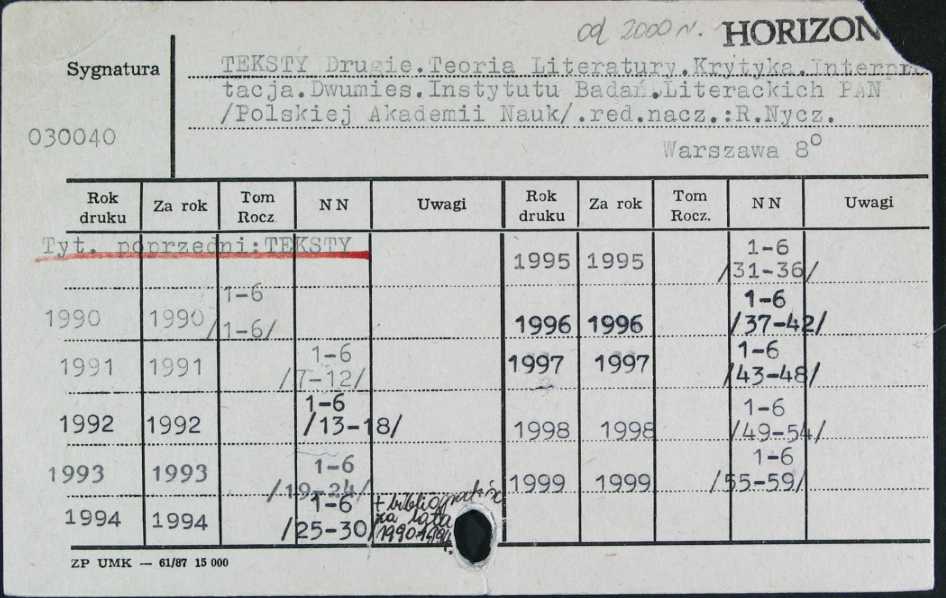 od 2000 r. HORIZON
Sygnatura
030040
TEKSTY Drugie.Teoria Literatury.Krytyka.Interpre
tacja.Dwumies.Instytutu Badań.Literackich PAN
/Polskiej Akademii Nauk/.red.nacz.:R.Nycz.
Warszawa 8°
Rok druku Za rok Tom Rocz. NN Uwagi Rok druku Za rok Tom Rocz. NN Uwagi
Tyt. poprzedni:TEKSTY
1990 1990 1-6 /1-6/
1991 1991 1-6 /7-12/
1992 1992 1-6 /13-18/
1993 1993 1-6 /19-24/
1994 1994 1-6 /25-30/ + bibliografia za lata 1990-1994
1995 1995 1-6 /31-36/
1996 1996 1-6 /37-42/
1997 1997 1-6 /43-48/
1998 1998 1-6 /49-54/
1999 1999 1-6 /55-59/
ZP UMK — 61/87 15 000